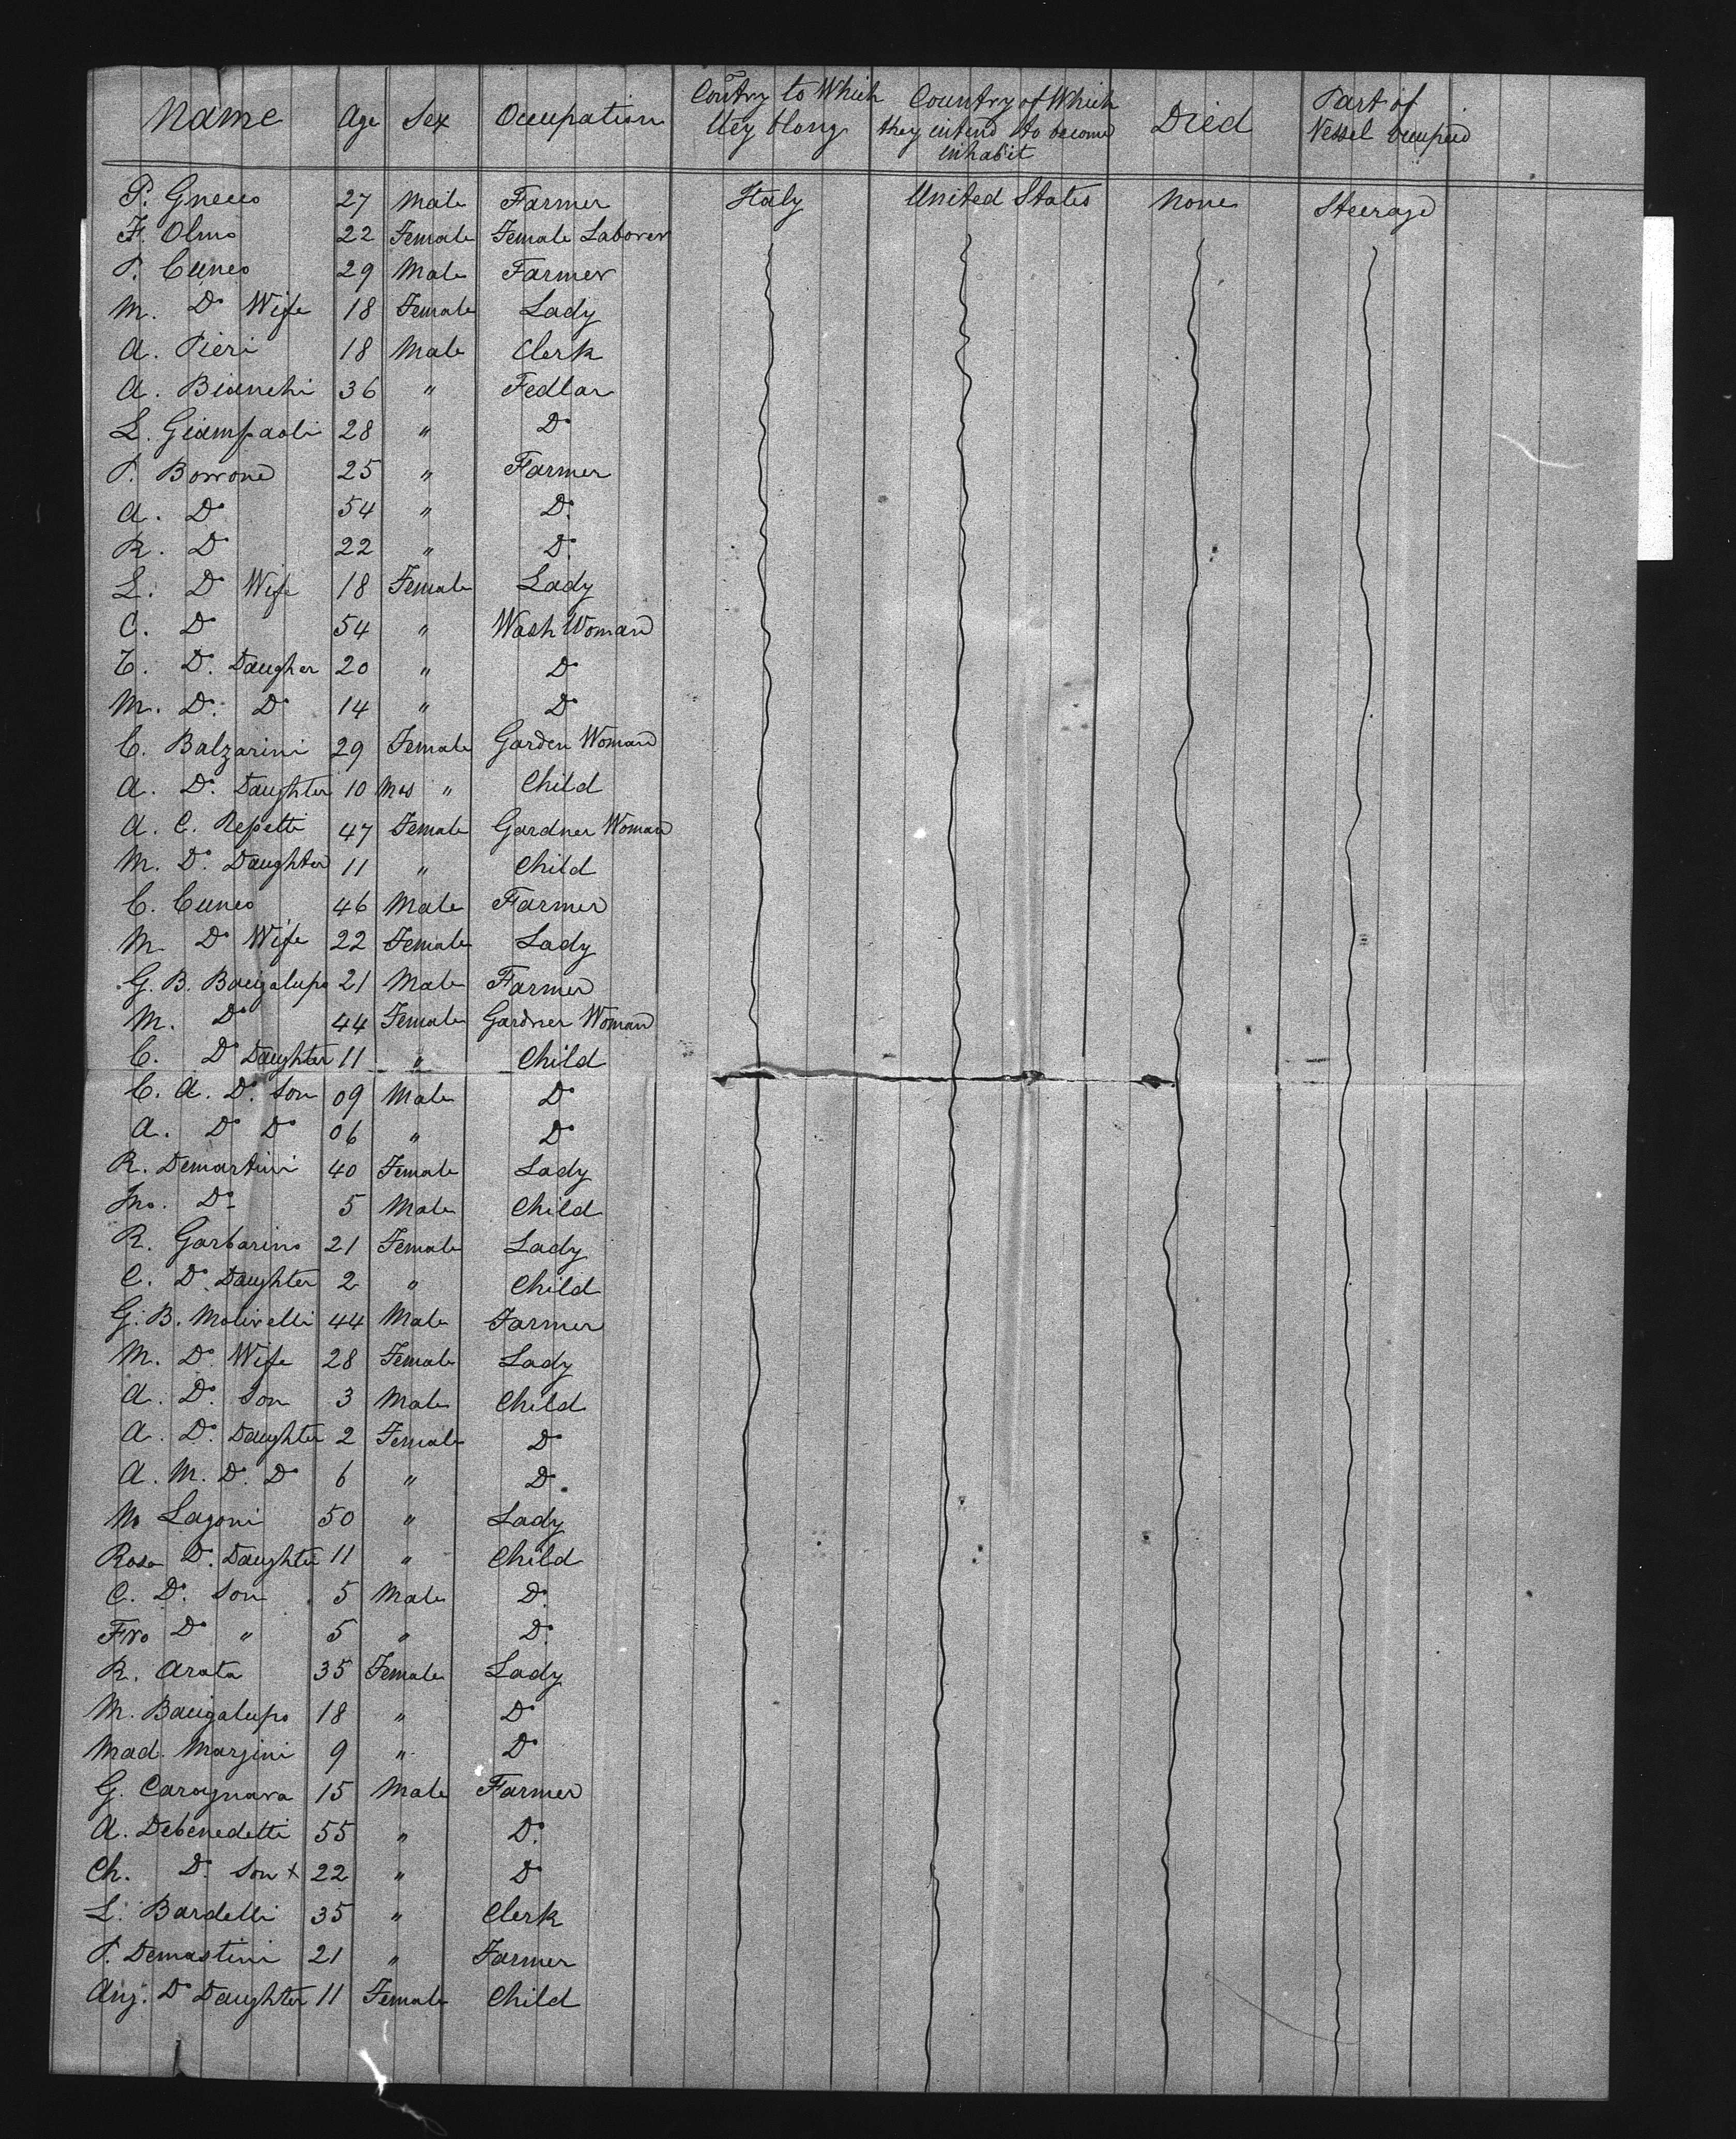 Name Age Sex Occupation Contry to Which they blong Country of Which they intend to become inhabit Died Part of Vessel Occupied
P. Gneco 27 Male Farmer Italy United States None Steerage
F. Olmo 22 Female Female Laborer
P. Cuneo 29 Male Farmer
M. Do Wife 18 Female Lady
A. Pieri 18 Male Clerk
A. Bianchi 36 " Pedlar
L. Giampaoli 28 " Do
P. Borrone 25 " Farmer
A. Do 54 " Do
R. Do 22 " Do
L. Do Wife 18 Female Lady
C. Do 54 " Wash Woman
T. Do Daugher 20 " Do
M. Do Do 14 " Do
C. Balzarini 29 Female Garden Woman
A. Do Daughter 10 Mos " Child
A. C. Repetti 47 Female Gardner Woman
M. Do Daughter 11 " Child
C. Cuneo 46 Male Farmer
M Do Wife 22 Female Lady
G. B. Bacigalupo 21 Male Farmer
M. Do 44 Female Gardner Woman
C. Do Daughter 11 " Child
C. A. Do Son 09 Male Do
A. Do Do 06 " Do
R. Demartini 40 Female Lady
Do 5 Male Child
R. Garbarino 21 Female Lady
C. Do Daughter 2 " Child
G. B. Molinelli 44 Male Farmer
M. Do Wife 28 Female Lady
A. Do Son 3 Male Child
A. Do Daughter 2 Female Do
A. M. Do Do 6 " Do
M Lagoni 50 " Lady
Rosa Do Daughter 11 " Child
C. Do Son 5 Male Do
Fro Do " 5 " Do
R. Arata 35 Female Lady
M. Bacigalupo 18 " Do
Mad. Marzini 9 " Do
G. Caragnara 15 Male Farmer
A. Debenedetti 55 " Do
Ch. Do Son x 22 " Do
L. Bardelli 35 " Clerk
P. Demastini 21 " Farmer
Ang. Do Daughter 11 Female Child